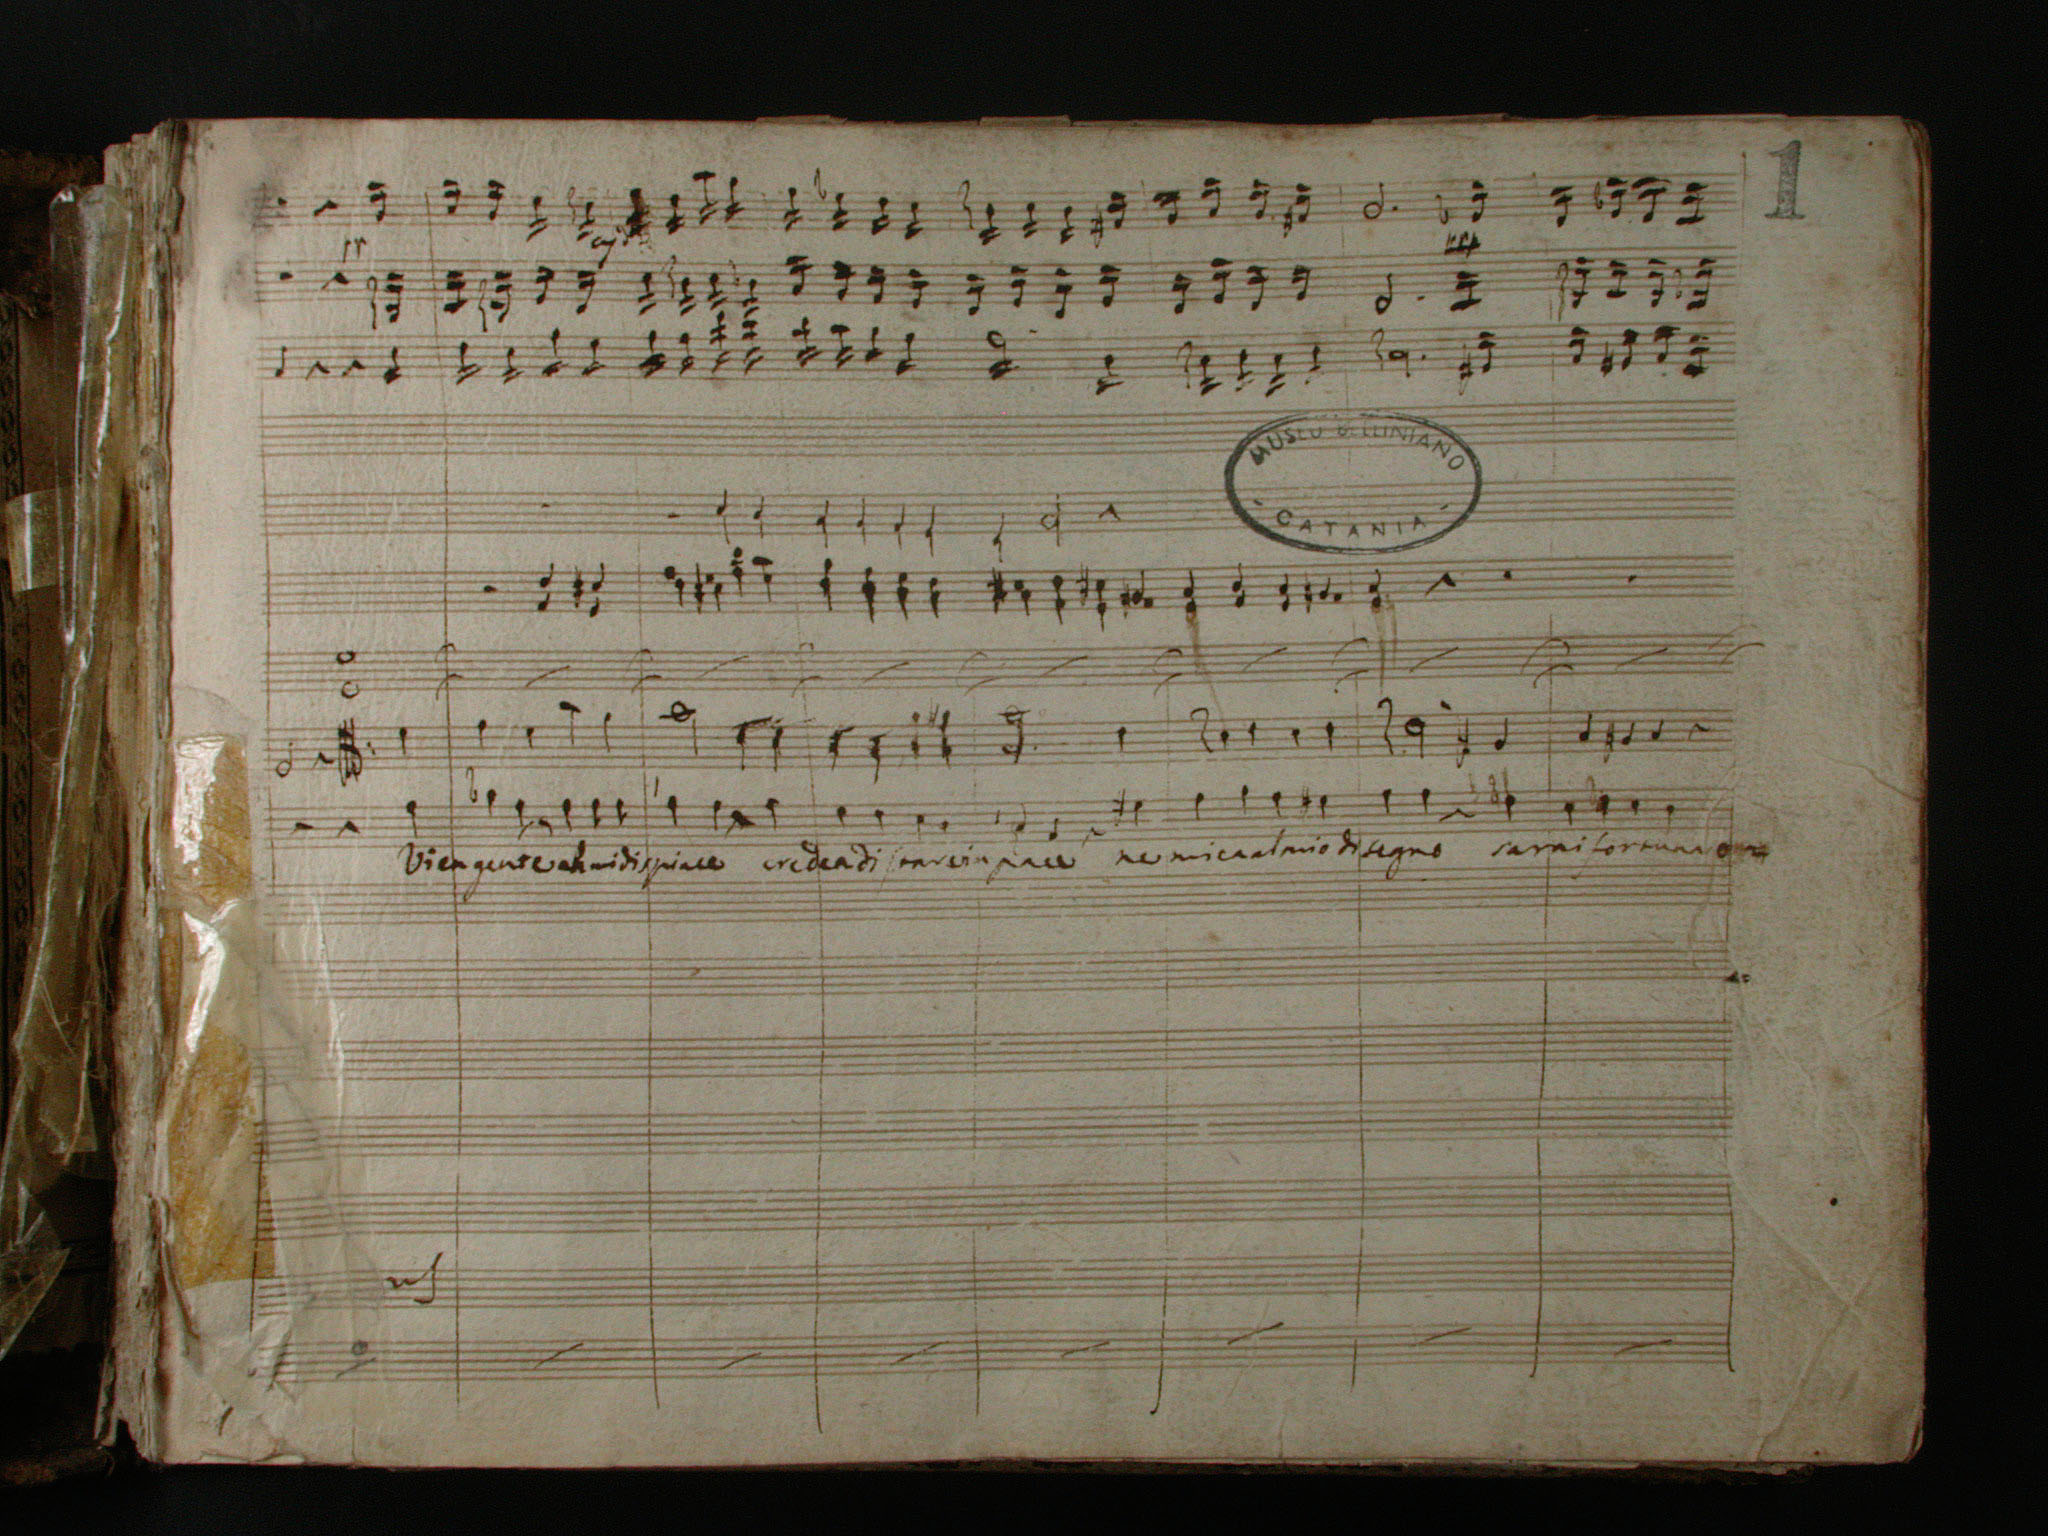 1
MUSEO BELLINIANO
- CATANIA -
Vien gente ah mi dispiace credea di stare in pace nemica al mio disegno sarai fortuna